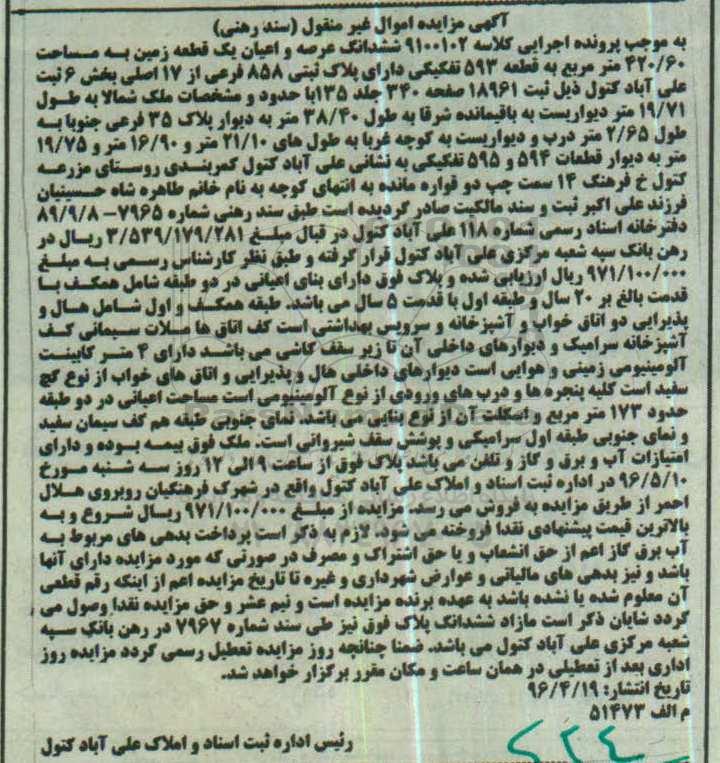 آگهی مزایده اموال غیر منقول (سند رهنی)
به موجب پرونده اجرایی کلاسه ۹۱۰۰۱۰۲ ششدانگ عرصه و اعیان یک قطعه زمین به مساحت
۴۲۰/۶۰ متر مربع به قطعه ۵۹۳ تفکیکی دارای پلاک ثبتی ۸۵۸ فرعی از ۱۷ اصلی بخش ۶ ثبت
علی آباد کتول ذیل ثبت ۱۸۹۶۱ صفحه ۳۴۰ جلد ۱۳۵با حدود و مشخصات ملک شمالا به طول
۱۹/۷۱ متر دیواریست به باقیمانده شرقا به طول ۳۸/۴۰ متر به دیوار پلاک ۳۵ فرعی جنوبا به
طول ۲/۶۵ متر درب و دیواریست به کوچه غربا به طول های ۲۱/۱۰ متر و ۱۶/۹۰ متر و ۱۹/۷۵
متر به دیوار قطعات ۵۹۴ و ۵۹۵ تفکیکی به نشانی علی آباد کتول کمربندی روستای مزرعه
کتول خ فرهنگ ۱۴ سمت چپ دو قواره مانده به انتهای کوچه به نام خانم طاهره شاه حسینیان
فرزند علی اکبر ثبت و سند مالکیت صادر گردیده است طبق سند رهنی شماره ۷۹۶۵- ۸۹/۹/۸
دفترخانه اسناد رسمی شماره ۱۱۸ علی آباد کتول در قبال مبلغ ۳/۵۳۹/۱۷۹/۲۸۱ ریال در
رهن بانک سپه شعبه مرکزی علی آباد کتول قرار گرفته و طبق نظر کارشناس رسمی به مبلغ
۹۷۱/۱۰۰/۰۰۰ ریال ارزیابی شده و پلاک فوق دارای بنای اعیانی در دو طبقه شامل همکف با
قدمت بالغ بر ۲۰ سال و طبقه اول با قدمت ۵ سال می باشد. طبقه همکف و اول شامل هال و
پذیرایی دو اتاق خواب و آشپزخانه و سرویس بهداشتی است کف اتاق ها ملات سیمانی کف
آشپزخانه سرامیک و دیوارهای داخلی آن تا زیر سقف کاشی می باشد دارای ۴ متر کابینت
آلومینیومی زمینی و هوایی است دیوارهای داخلی هال و پذیرایی و اتاق های خواب از نوع گچ
سفید است کلیه پنجره ها و درب های ورودی از نوع آلومینیومی است مساحت اعیانی در دو طبقه
حدود ۱۷۳ متر مربع و اسکلت آن از نوع بنایی می باشد. نمای جنوبی طبقه هم کف سیمان سفید
و نمای جنوبی طبقه اول سرامیکی و پوشش سقف شیروانی است. ملک فوق بیمه بوده و دارای
امتیازات آب و برق و گاز و تلفن می باشد پلاک فوق از ساعت ۹ الی ۱۲ روز سه شنبه مورخ
۹۶/۵/۱۰ در اداره ثبت اسناد و املاک علی آباد کتول واقع در شهرک فرهنگیان روبروی هلال
احمر از طریق مزایده به فروش می رسد. مزایده از مبلغ ۹۷۱/۱۰۰/۰۰۰ ریال شروع و به
بالاترین قیمت پیشنهادی نقدا فروخته می شود. لازم به ذکر است پرداخت بدهی های مربوط به
آب برق گاز اعم از حق انشعاب و یا حق اشتراک و مصرف در صورتی که مورد مزایده دارای آنها
باشد و نیز بدهی های مالیاتی و عوارض شهرداری و غیره تا تاریخ مزایده اعم از اینکه رقم قطعی
آن معلوم شده یا نشده باشد به عهده برنده مزایده است و نیم عشر و حق مزایده نقدا وصول می
گردد شایان ذکر است مازاد ششدانگ پلاک فوق نیز طی سند شماره ۷۹۶۷ در رهن بانک سپه
شعبه مرکزی علی آباد کتول می باشد. ضمنا چنانچه روز مزایده تعطیل رسمی گردد مزایده روز
اداری بعد از تعطیلی در همان ساعت و مکان مقرر برگزار خواهد شد.
تاریخ انتشار: ۹۶/۴/۱۹
م الف ۵۱۴۷۳
رئیس اداره ثبت اسناد و املاک علی آباد کتول